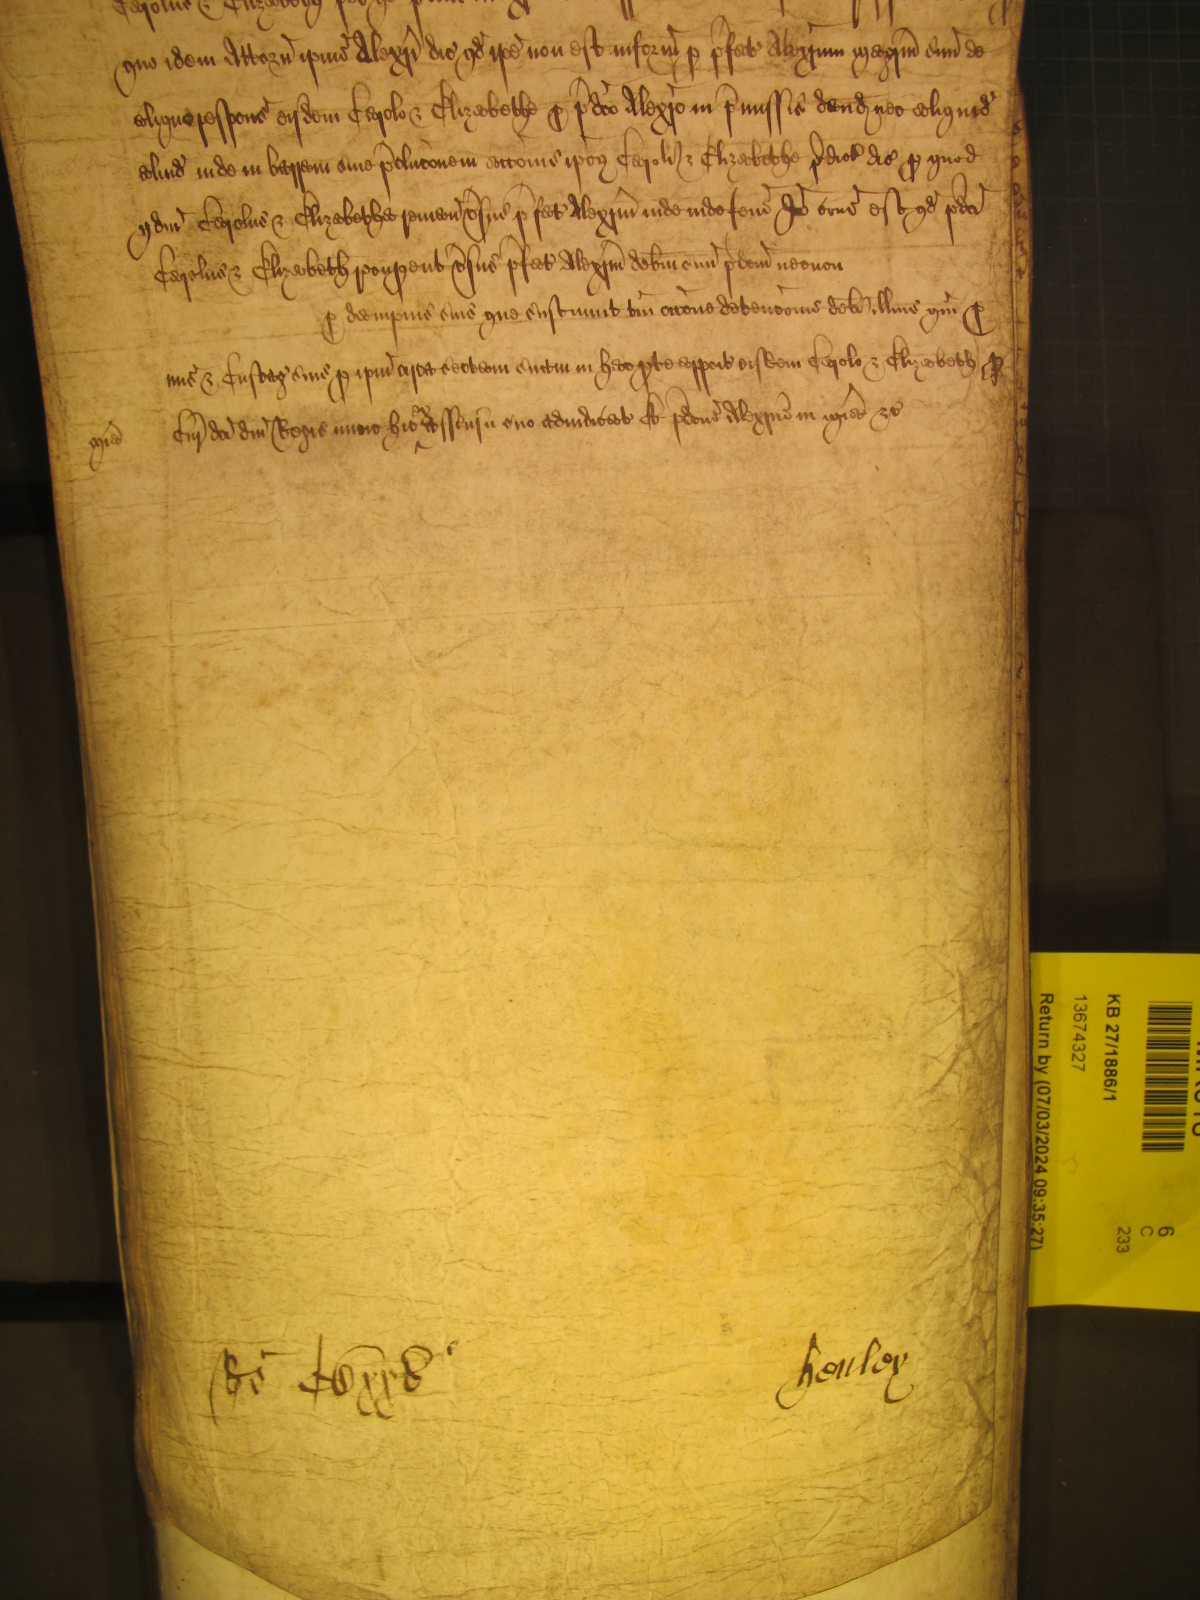 Carolus & Elizabeth
quo idem Attorn ipius Alexri dic qd ipe non est inform p p̄fat Alexrum magrm suum de
aliquo respons eisdem Carolo & Elizabethe p p̄dco Alexro in p̄missis dand nec aliquid
aliud inde in barram sive p̄clucōnem accōnis ipoꝝ Caroli & Elizabethe p̄dict dic p quod
ijdm Carolus & Elizabetha remanent v̄sus p̄fat Alexrum inde indefens Iō cons est qd p̄dci
Carolus & Elizabeth recuperent v̄sus p̄fat Alexrum debm suum p̄dcm necnon
p dampnis suis que sustinuit tam occōne detencōnis debi illius qm p
mis & Custag suis p ipm circa sectam suam in hac pte apposit eisdem Carolo & Elizabeth p
Cur dci dni Regis nunc hic ex assensu suo adiudicat Et p̄dcus Alexrus in mia &c
mia
Henley
KB 27/1886/1
13674327
Return by (07/03/2024 09:35:27)
6
C
233